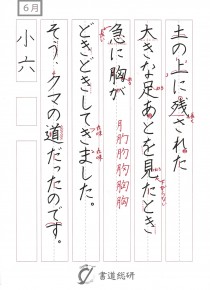 6月
土の上に残された
大きな足あとを見たとき
急に胸が
どきどきしてきました。
そう、クマの道だったのです。
小六
書道総研